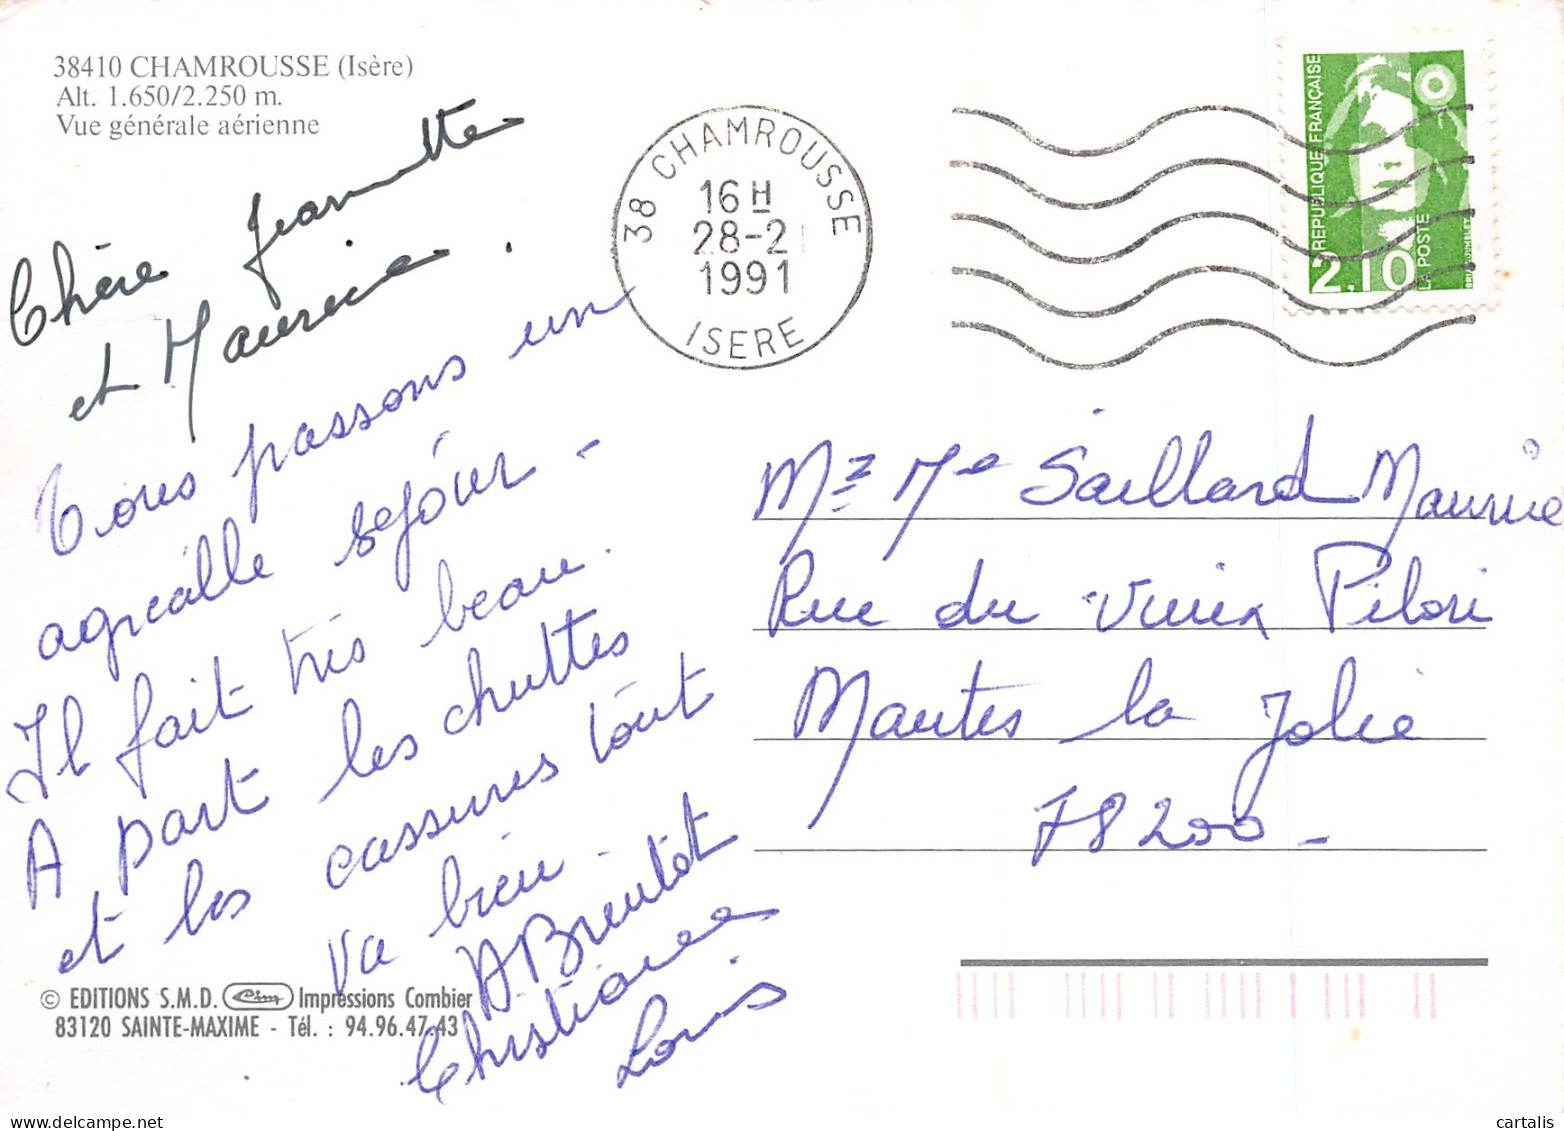 38410 CHAMROUSSE (Isère)
Alt. 1.650/2.250 m.
Vue générale aérienne
Chère Jeannette
et Maurice.
Nous passons un
agréable séjour -
Il fait très beau.
A part les chuttes
et les cassures tout
va bien -
A Brentot
Christiane
Louis
© EDITIONS S.M.D. Cim Impressions Combier
83120 SAINTE-MAXIME - Tél. : 94.96.47.43
38 CHAMROUSSE
16 H
28-2
1991
ISERE
REPUBLIQUE FRANÇAISE
LA POSTE
2,10
Mr Me Saillard Maurice
Rue du vieux Pilori
Mantes la Jolie
78200 -
cartalis